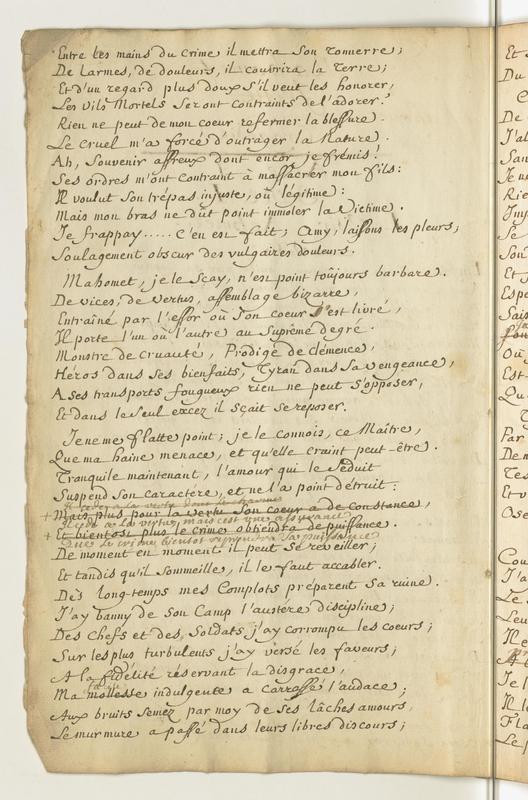 Entre les mains du crime il mettra son tonnerre;
De larmes, de douleurs, il couvrira la terre;
Et d'un regard plus doux s'il veut les honorer,
Les vils Mortels seront contraints de l'adorer.
Rien ne peut de mon coeur refermer la blessure.
Le cruel m'a forcé d'outrager la Nature.
Ah, Souvenir affreux dont encor je frémis!
Ses ordres m'ont contraint à massacrer mon fils:
Il voulut son trépas injuste, ou légitime:
Mais mon bras ne dut point immoler la Victime.
Je frappay..... C'en est fait; Amy, laissons les pleurs;
Soulagement obscur des vulgaires douleurs.
Mahomet, je le sçay, n'est point toûjours barbare.
De vices, de vertus, assemblage bizarre,
Entraîné par l'essor où son coeur s'est livré,
Il porte l'un ou l'autre au suprême degré.
Monstre de cruauté, Prodige de clémence,
Héros dans ses bienfaits, Tyran dans sa vengeance,
A ses transports fougueux rien ne peut s'opposer,
Et dans le seul excez il sçait se reposer.
Je ne me flatte point; je le connois, ce Maître,
Que ma haine menace, et qu'elle craint peut-être.
Tranquile maintenant, l'amour qui le séduit
Suspend son caractère, et ne l'a point détruit:
Il cède à la vertu dont le charme
+ Mais plus pour la vertu son coeur a de constance,
Il cède à la vertu, mais c'est une
+ Et bientost plus le crime obtiendra de puissance.
Que le crime bientost reprendra sa puissance
De moment en moment il peut se réveiller;
Et tandis qu'il sommeille, il le faut accabler.
Dès long-temps mes Complots préparent sa ruine.
J'ay banny de son Camp l'austère discipline;
Des Chefs et des Soldats j'ay corrompu les coeurs;
Sur les plus turbulents j'ay versé les faveurs;
A la fidélité réservant la disgrace,
Ma mollesse indulgente a carressé l'audace;
Aux bruits semez par moy de ses lâches amours,
Le murmure a passé dans leurs libres discours;